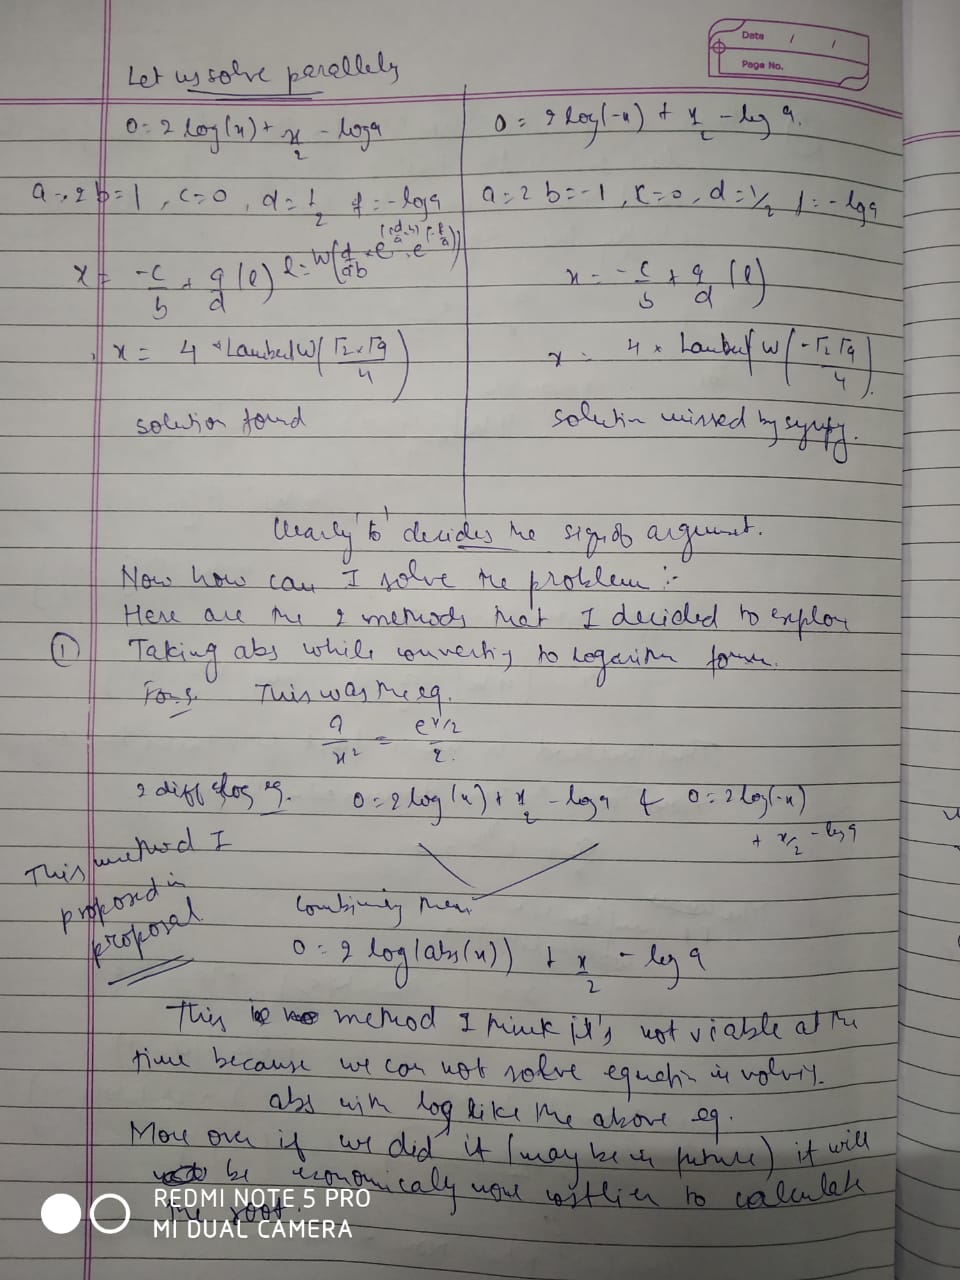 Date / /
Page No.
Let us solve parallely
0 = 2 log(x) + x/2 - log a
a = 2 b = 1 , c = 0 , d = 1/2 f = - log a
x = -c/b + a/d (l) l = W(d/ab
x = 4 * LambertW(√2 × √a / 4)
solution found
0 = 2 log(-x) + x/2 - log a.
a = 2 b = -1 , c = 0 , d = 1/2 f = - log a
x = -c/b + a/d (l)
x = 4 × Lambert W(-√2 √a / 4).
solution missed by sympy.
Clearly 'b' decides the sign of argument.
Now how can I solve the problem :-
Here are the 2 methods that I decided to explore
① Taking abs while converting to logarithm form.
This was the eq.
a/x² = e^x/2 / 2.
2 diff log eq. 0 = 2 log(x) + x/2 - log a & 0 = 2 log(-x)
+ x/2 - log a
This method I
proposed in
proposal
Combining them
0 = 2 log(abs(x)) + x/2 - log a
This method I think it's not viable at the
time because we can not solve equation involving
abs with log like the above eq.
More over if we did it (may be in future) it will
be economicaly more costlier to calculate
the root.
REDMI NOTE 5 PRO
MI DUAL CAMERA